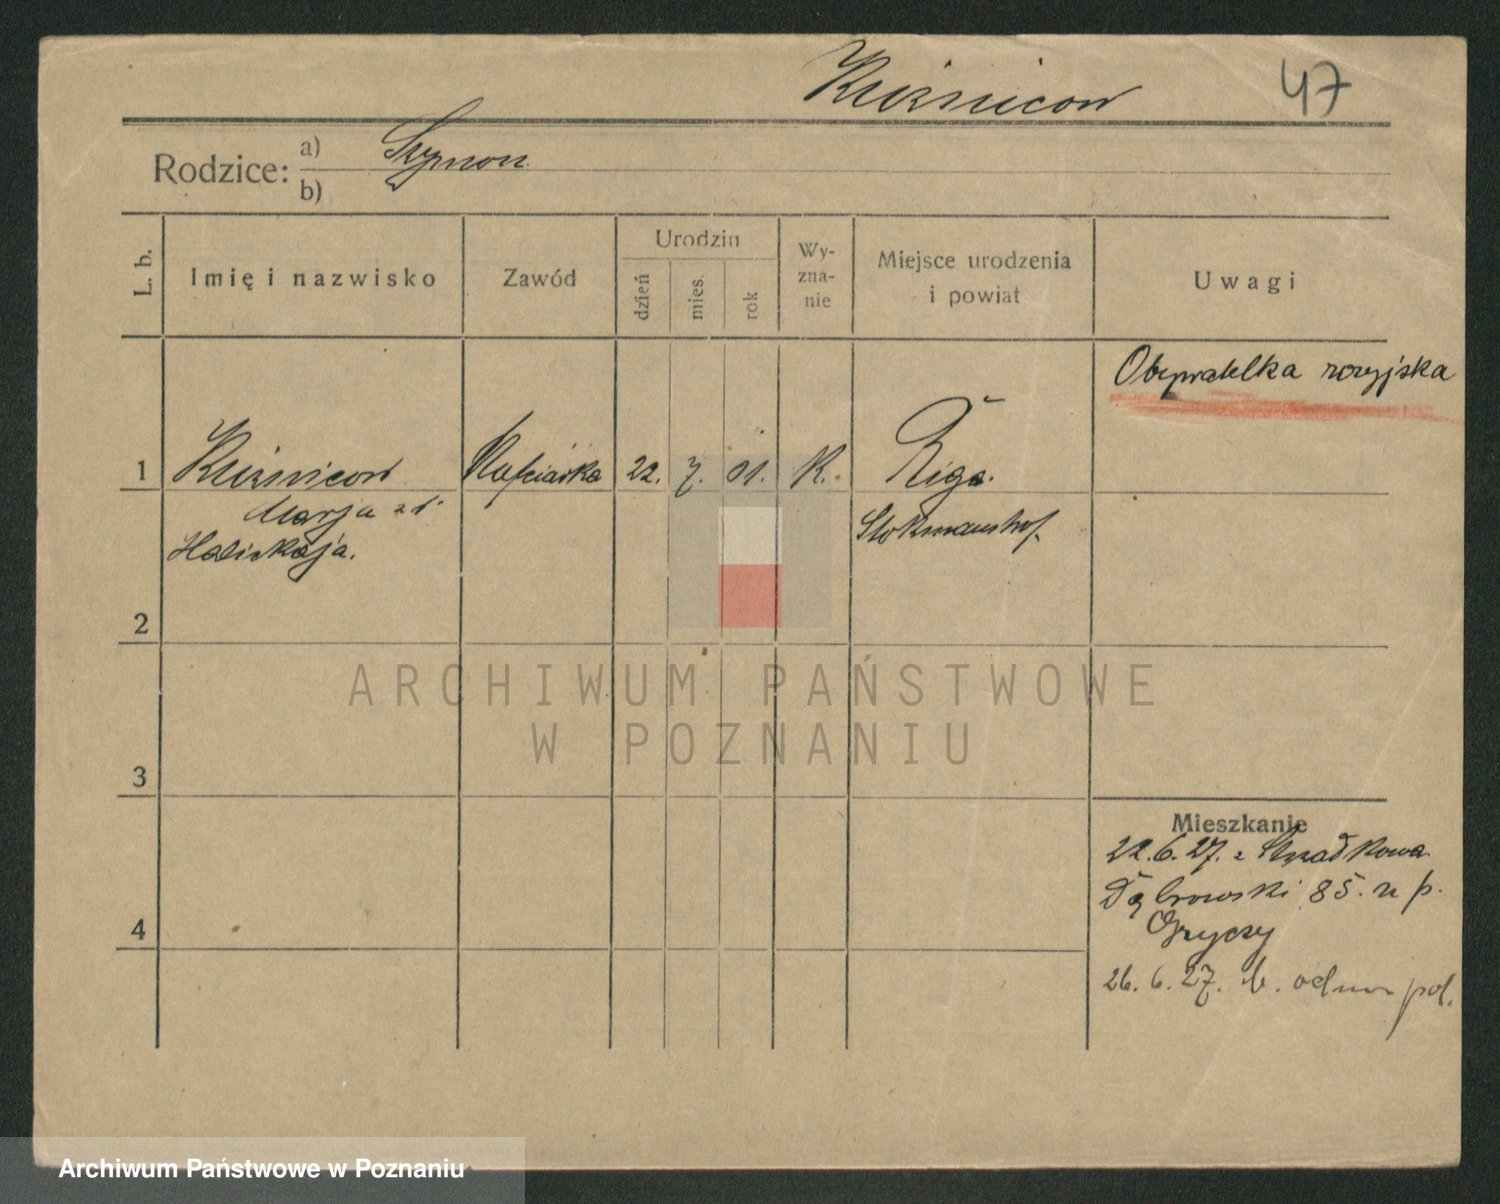 Kuźnicow 47
Rodzice: a) Szymon
b)
L. b. Imię i nazwisko Zawód Urodzin dzień mies. rok Wyzna-nie Miejsce urodzenia i powiat Uwagi
Obywatelka rosyjska
1 Kuźnicow Hafciarka 22. 7. 01. K. Riga.
Marja
Stokmanshof.
2
ARCHIWUM PAŃSTWOWE
W POZNANIU
3
Mieszkanie
22. 6. 27. z
Dąbrowski 85. u p.
Gryczy
4
26. 6. 27. b. pol.
Archiwum Państwowe w Poznaniu